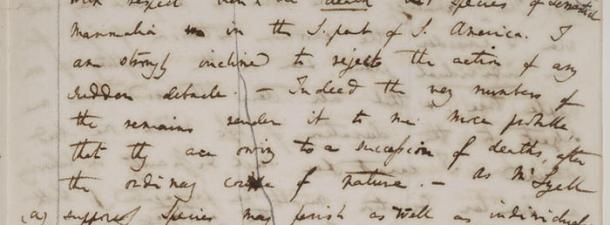 with respect then to the death of species of Terrestrial
Mammalia in the S. part of S. America. I
am strongly inclined to reject the action of any
sudden debacle. — Indeed the very numbers of
the remains render it to me more probable
that they are owing to a succession of deaths, after
the ordinary course of nature. — As Mr Lyell
(a) supposes Species may perish as well as individuals